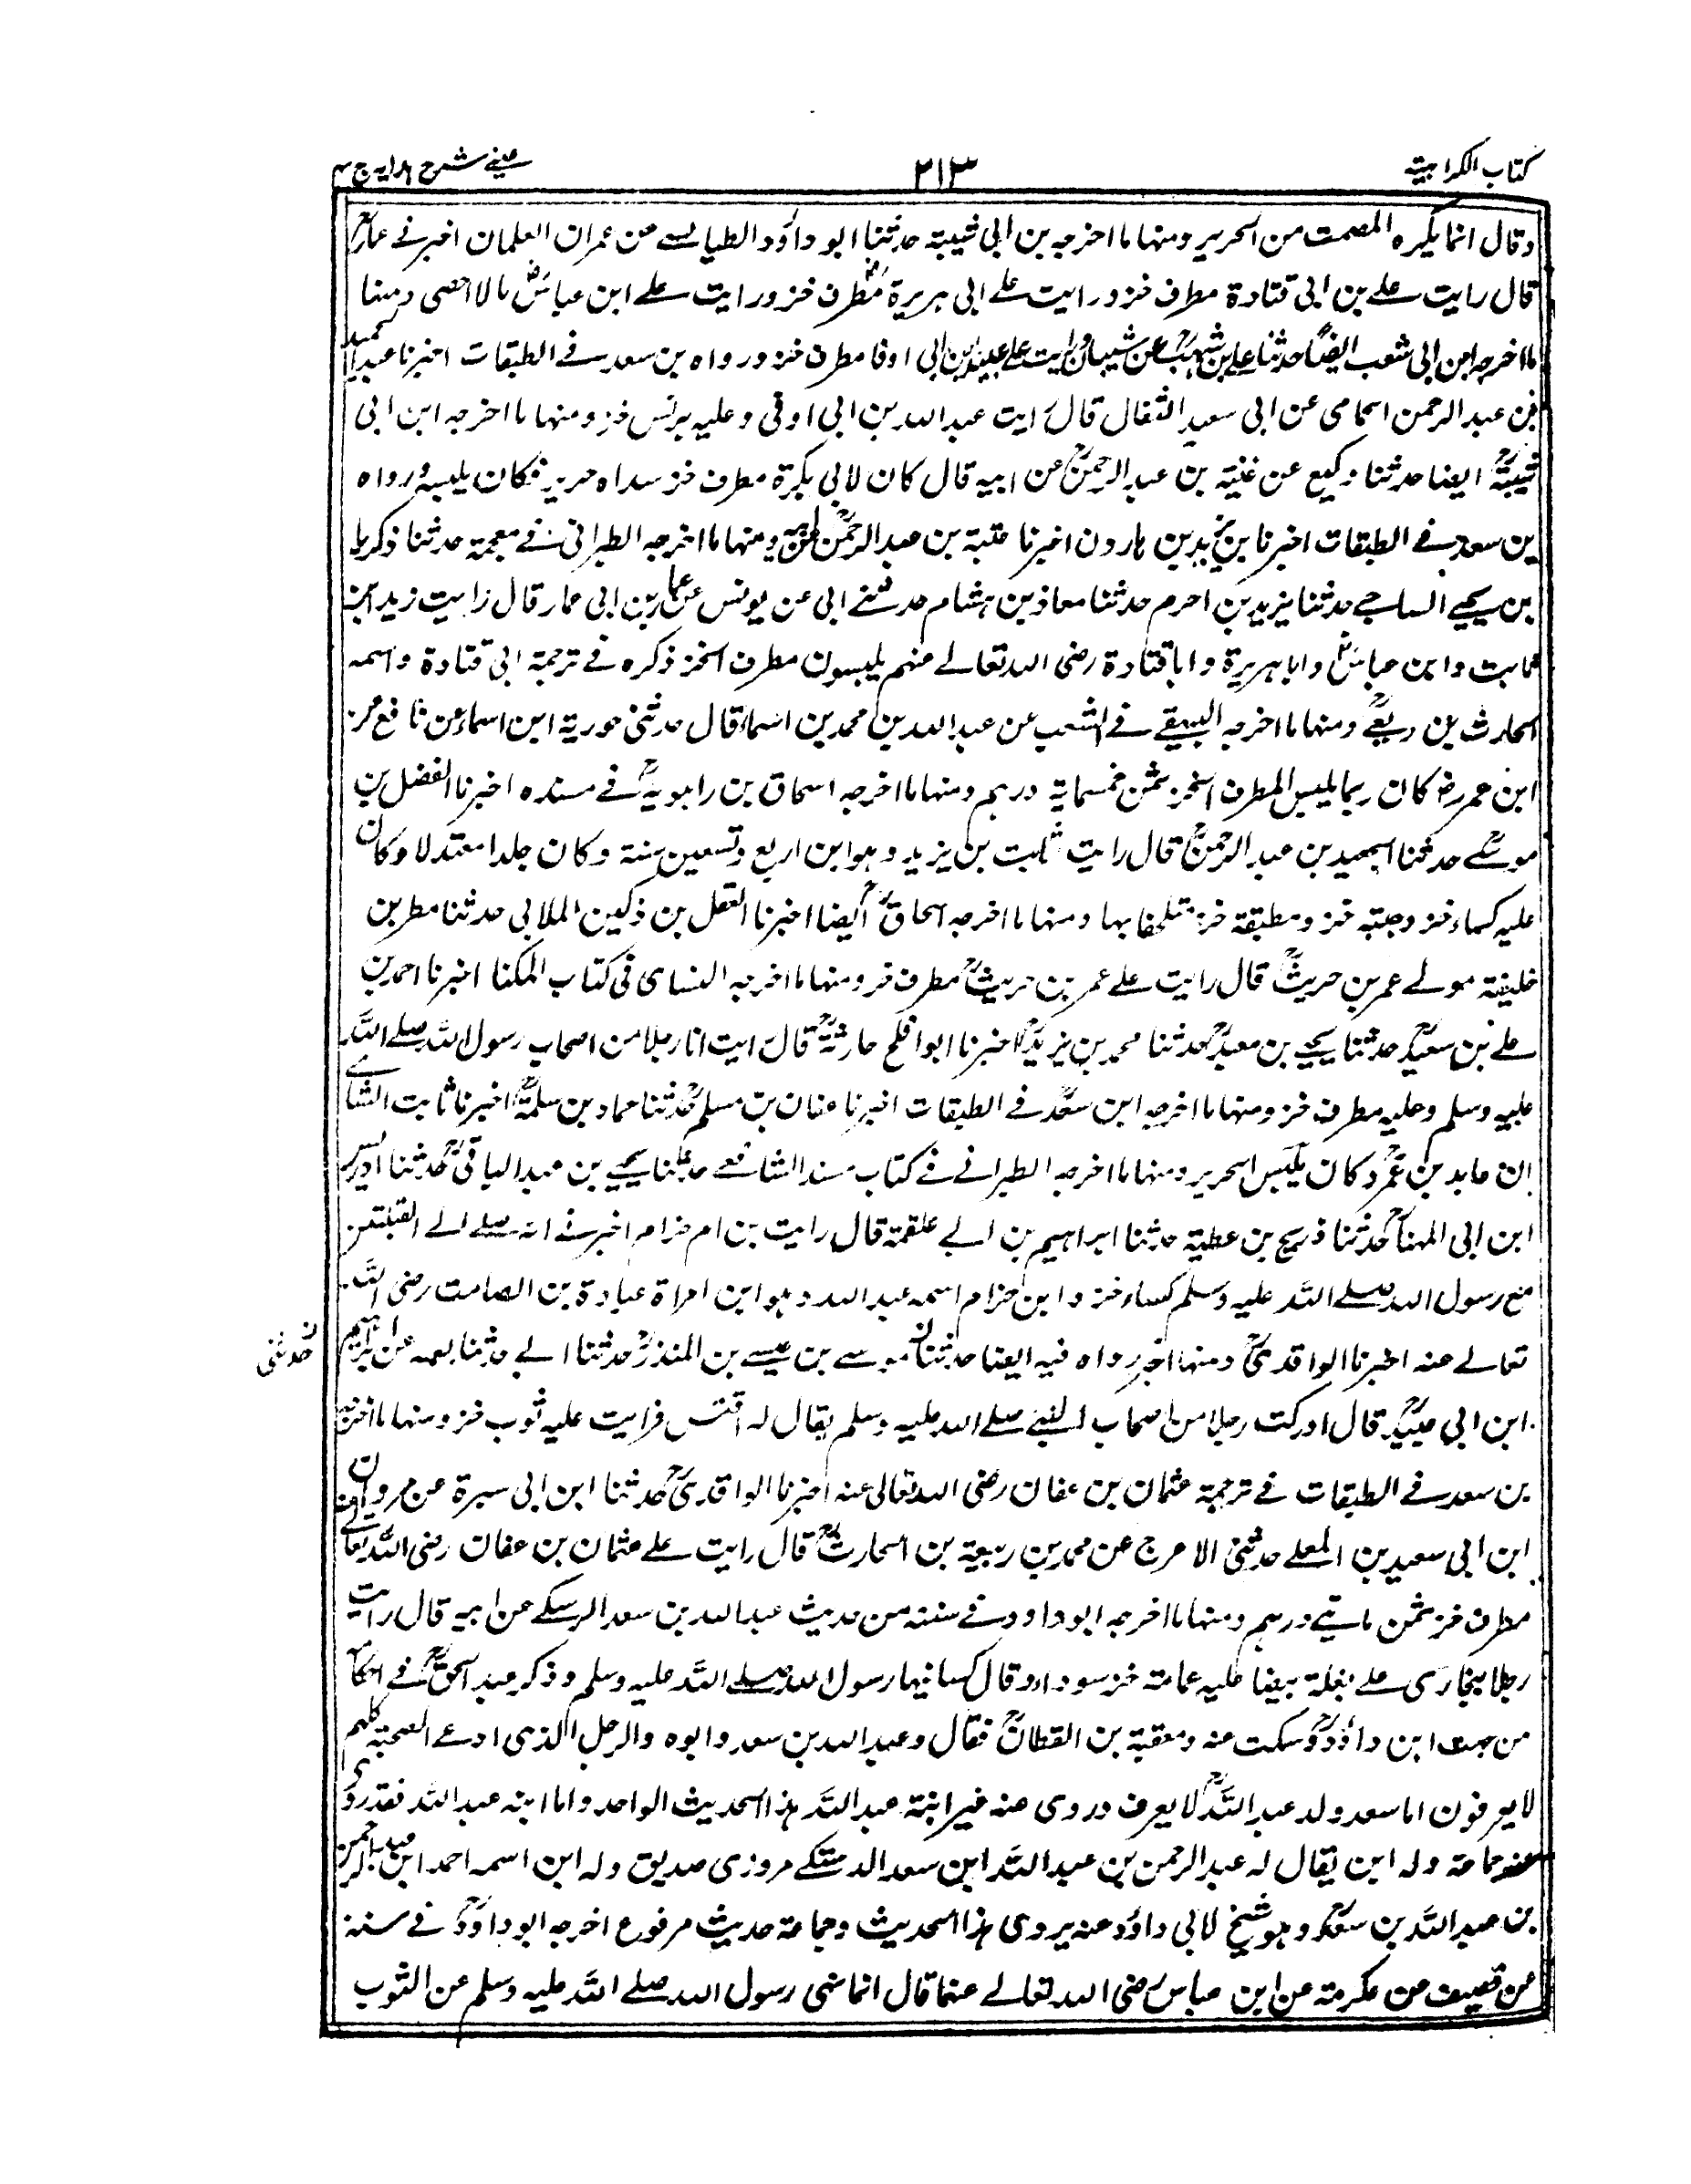 كتاب الكراهية
٢١٣
عيني شرح هدايه ج ٤
وقال انما يكره المصمت من الحرير ومنها ما اخرجه بن ابى شيبة حدثنا ابو داؤد الطيالسے عن عمران العلمان اخبرنے عمار
قال رايت علے بن ابى قتادة مطرف خز ورايت علے ابى هريرة مطرف خز ورايت علے ابن عباس مالا احصى ومنها
ما اخرجه ابن ابى شعب ايضا حدثنا على بن شهب عن شيبان رايت على عبيد بن ابى اوفا مطرف خز ورواه بن سعد فے الطبقات اخبرنا عبد الحميد
بن عبد الرحمن الحامى عن ابى سعيد الثفال قال رايت عبد الله بن ابى اوفى وعليه برنس خز ومنها ما اخرجه ابن ابى
شيبة ايضا حدثنا وكيع عن غنية بن عبد الرحمن عن ابيه قال كان لابى بكرة مطرف خز سداه حرير فكان يلبسه ورواه
بن سعد فے الطبقات اخبرنا يزيد بن هارون اخبرنا عتبة بن عبد الرحمن ومنها ما اخرجه الطبرانى فے معجمة حدثنا ذكريا
بن يحيے الساجے حدثنا يزيد بن احرم حدثنا معاذ بن هشام حدثنے ابى عن يونس عن عمار بن ابى عمار قال رايت زيد ابن
ثابت وابن عباس وابا هريرة وابا قتادة رضى الله تعالے عنهم يلبسون مطرف الخز ذكره فے ترجمة ابى قتادة واسمه
الحارث بن ربعے ومنها ما اخرجه البيهقے فے الشعب عن عبد الله بن محمد بن اسماء قال حدثنى حورية ابن اسماء عن نافع عن
ابن عمر رض كان ربما يلبس المطرف الخز بثمن خمسماية درهم ومنها ما اخرجه اسحاق بن راهويه فے مسنده اخبرنا الفضل بن
موسے حدثنا الجعيد بن عبد الرحمن قال رايت ثابت بن يزيد وهو ابن اربع وتسعين سنة وكان جلدا معتدلا وكان
عليه كساء خز وجبته خز ومطبقة خز متلحفا بها ومنها ما اخرجه اسحاق ايضا اخبرنا الفضل بن ذكين الملابى حدثنا مطر بن
خليفة مولے عمر بن حريث قال رايت علے عمر بن حريث مطرف خز ومنها ما اخرجه النساى فى كتاب المكنا اخبرنا احمد بن
علے بن سعيد حدثنا يحيے بن معيد حدثنا محمد بن يزيد اخبرنا ابو افلح حارثية قال رايت انا رجلا من اصحاب رسول الله صلے الله
عليه وسلم وعليه مطرف خز ومنها ما اخرجه ابن سعد فے الطبقات اخبرنا عفان بن مسلم حدثنا حماد بن سلمة اخبرنا ثابت الشا
ان عابد بن عمرو كان يلبس الحرير ومنها ما اخرجه الطبرانے فے كتاب مسند الشافعے حدثنا يحيے بن عبد الباقى حدثنا ادريس
ابن ابى المهنا حدثنا ذريح بن عطية حدثنا ابراهيم بن ابے علقمة قال رايت بن ام حزام اخبرنے انه صلے الے القبلتين
مع رسول الله صلے الله عليه وسلم كساء خز وابن حزام اسمه عبد الله وهو ابن امراة عبادة بن الصامت رضى الله
تعالے عنه اخبرنا الواقدى ومنها اخبر رواه فيه ايضا حدثنا موسے بن عيسے بن المنذر حدثنا ابے حدثنا بعمه عن ابراهيم
ن حدثنى
ابن ابى عبيد قال ادركت رجلا من اصحاب النبے صلے الله عليه وسلم يقال له افنس فرايت عليه ثوب خز ومنها ما اخرجه
بن سعد فے الطبقات فے ترجمة عثمان بن عفان رضى الله تعالى عنه اخبرنا الواقدى حدثنا ابن ابى سبرة عن مروان
ابن ابى سعيد بن المعلے حدثنى الاعرج عن محمد بن ربيعة بن الحارث قال رايت علے عثمان بن عفان رضى الله تعالے
مطرف خز بثمن مايتے درهم ومنها ما اخرجه ابو داود فے سننه من حديث عبد الله بن سعد الرسكے عن ابيه قال رايت
رجلا ببخارى علے بغلة بيضا عليه عمامة خز سوداء وقال كسانيها رسول الله صلے الله عليه وسلم وذكر عبد الحق فے احكام
من جهت ابن داؤد وسكت عنه ومعقبة بن القطان فقال وعبد الله بن سعد وابوه والرجل الذى ادعے الصحبة كلهم
لا يعرفون اما سعد ولد عبد الله لا يعرف وروى عنه غير ابنة عبد الله هذا الحديث الواحد واما ابنه عبد الله فقد روى
عنه جماعة وله ابن يقال له عبد الرحمن بن عبد الله ابن سعد الدمشكے مروزى صديق وله ابن اسمه احمد ابن عبد الرحمن
بن عبد الله بن سعد وهو شيخ لابى داؤد عنه يروى هذا الحديث وجماعة حديث مرفوع اخرجه ابو داود فے سننه
عن قصيف عن عكرمة عن ابن عباس رضى الله تعالے عنهما قال انما نهى رسول الله صلے الله عليه وسلم عن الثوب